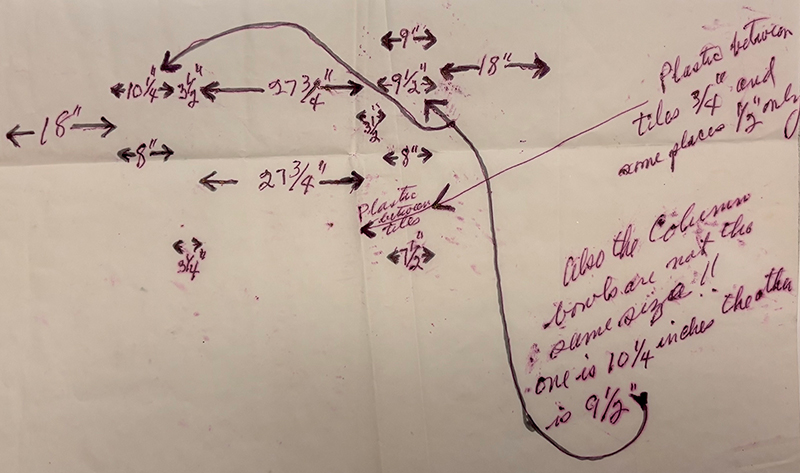 9"
10 1/4" 3 1/2" 27 3/4" 9 1/2" 18"
3 1/2
18"
8" 8"
27 3/4"
Plastic
between
tiles
3/4" 7 1/2"
Plastic between
tiles 3/4" and
some places 1/2" only
Also the Column
bowls are not the
same size!!
one is 10 1/4 inches the other
is 9 1/2"